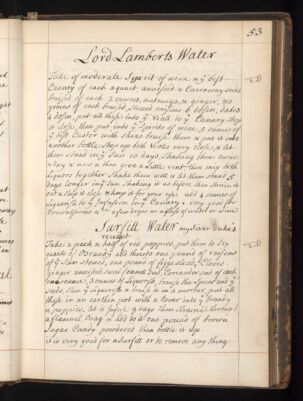 53
Lord Lamberts Water
Take of moderate Spirit of wine & yͤ best
Canary of each a quart, annisseed & Carroway seeds
bruised of each 2 ounces, nutmegs, & ginger, 40
grains of each bruised, stoned raisons 6 ounces, dates
4 ounces, put all these into yͤ Viall to yͤ Canary stop
it close, then put into yͤ Spirits of wine, 3 ounces of
yͤ best Castor with skins bruised them & put it into
another bottle Stop up both Violls very close, & let
them stand in yͤ Sun 10 days, Shaking them twice
a day & now & then give a little vent, then mix both
Liquors together Shake them well & let them stand 5
days longer in yͤ Sun Shaking it as before then strain it
out & stop it close & keep it for your use, add 4 ounces of
Liquorish to yͤ Infusion in yͤ Canary, very good for
after in a glass of wine
Surfeit Water my sister Duke's
receipt
Take a peck & half of red poppies put them to Six
quarts of brandy add thereto one pound of raisons
of yͤ Sun stoned, one pound of figgs sliced, Cloves
ginger annisseed sweet fennel seed, Coriander seed of each
one ounce, 3 ounces of Liquorish, bruise the Spices and yͤ
seeds, slice yͤ Liquorish & bruise it in a mortar, put all
these in an earthen pot with a Cover into yͤ brandy
& poppies, let it infuse 9 days then strain it through
a flannel Bag & add to it one pound of brown
Sugar Candy powdered then bottle it up.
it is very good for a Surfeit or to remove any thing